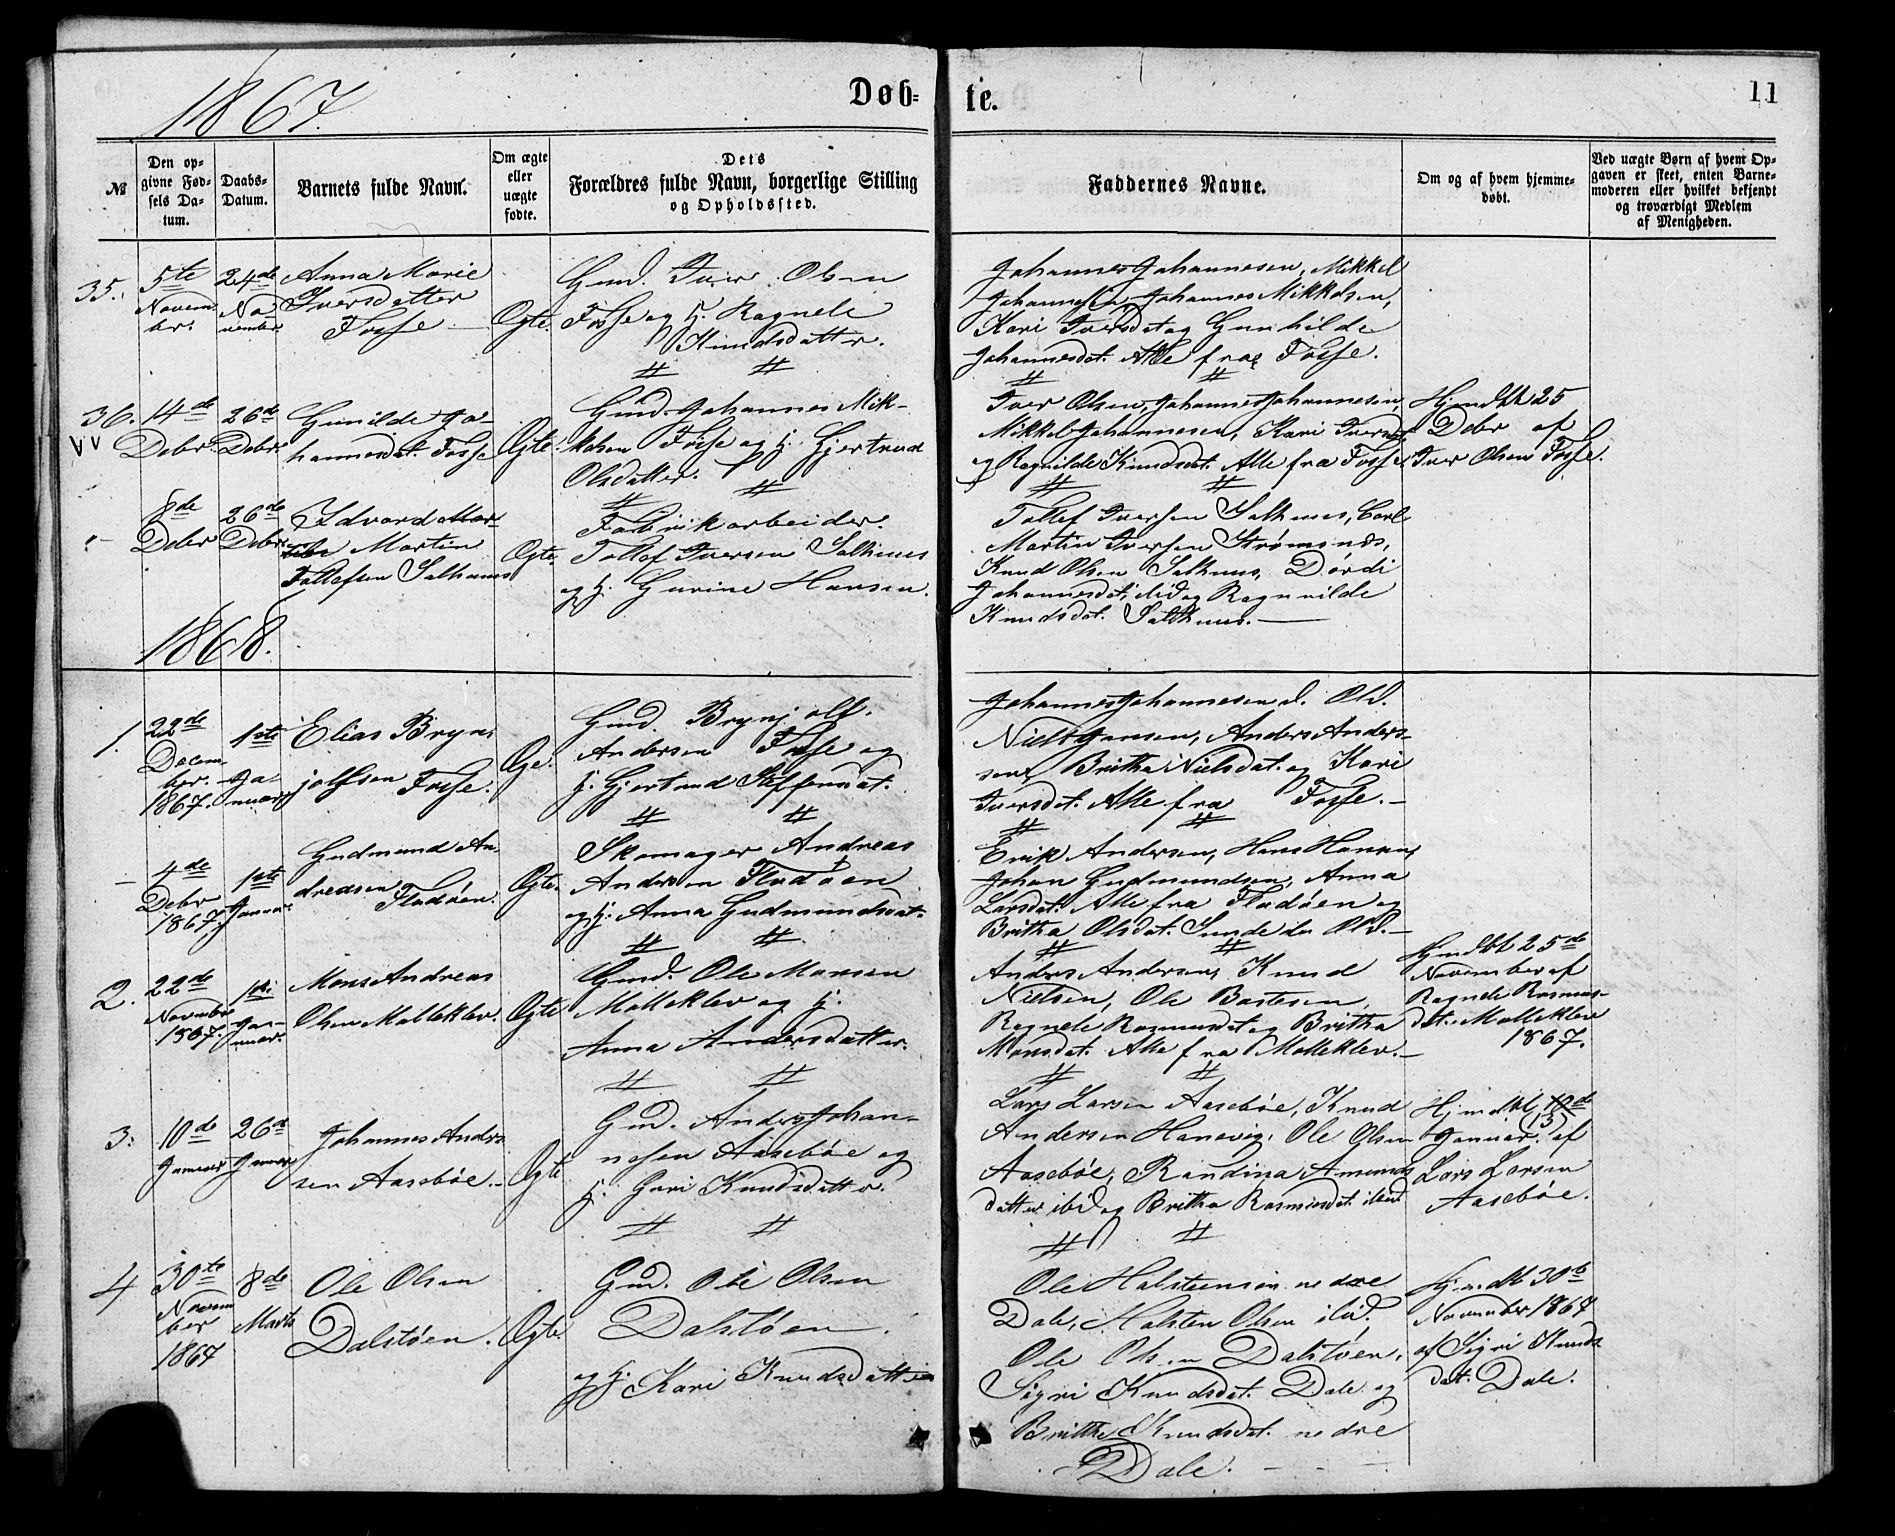 1867.
Døb-
te.
11
№
Den op-
givne Fød-
sels Da-
tum.
Daabs-
Datum.
Barnets fulde Navn.
Om ægte
eller
uægte
fødte.
Dets
Forældres fulde Navn, borgerlige Stilling
og Opholdssted.
Faddernes Navne.
Om og af hvem hjemme-
døbt.
Ved uægte Børn af hvem Op-
gaven er skeet, enten Barne-
moderen eller hvilket bekjendt
og troværdigt Medlem
af Menigheden.
35.
5te
Novem-
ber.
24de
No
vember
Anna Marie
Iversdatter
Fosse
Ægte.
Gmd. Iver Olsen
Fosse og H. Ragnele
Knudsdatter.
Johannes Johannesen, Mikkel
Johannesen Johannes Mikkelsen,
Kari Iversdat og Gunhilde
Johannesdat. Alle fra Fosse.
36.
14de
Debr.
26de
Debr.
Gunilde Jo-
hannesdat. Fosse
Ægte.
Gmd. Johannes Mik-
kelsen Fosse og H. Gjertrud
Olsdatter.
Iver Olsen, Johannes Johannesen,
Mikkel Johannesen, Kari Iversdat.
og Ragnilde Knudsdat. Alle fra Fosse.
Hjemdbt 25
Debr af
Iver Olsen Fosse.
8de
Debr
26de
Debr.
Edvard
Martin
Tollefsen Salhuus
Ægte.
Fabrikarbeider.
Tollef Iversen Salhuus
og H. Gurine Hansen.
Tollef Iversen Salhuus, Carl
Martin Iversen Strømsnæs,
Knud Olsen Salhuus, Dordi
Johannesdat. ibid og Ragnvilde
Knudsdat. Salhuus.
1868.
1.
22de
Decem-
ber.
1867.
1ste
Ja
nuar
Elias Bryn-
jolfsen Fosse.
Gmd. Brynjolf.
Andersen Fosse og
H. Gjertrud Steffensdat.
Johannes Johannesen d. Old.
Niels Jansen, Anders Anders-
sen, Britha Nielsdat. og Kari
Iversdat. Alle fra Fosse.
4de
Debr
1867.
1ste
Januar.
Gudmund An-
dreasen
Fladøen.
Ægte.
Skomager Andreas
Andersen Fladøen
og H. Anna Gudmundsdat.
Erik Andersen, Hans Hansen,
Johan Gudmundsen, Anna
Larsdat. Alle fra Fladøen og
Britha Olsdat.
2.
22de
Novembr
1867.
1ste
Jan-
nuar.
Mons Andreas
Olsen Molleklev.
Ægte
Gmd. Ole Monsen
Molleklev og H.
Anna Andersdatter.
Anders Andersen, Knud
Nielsen, Ole Bastesen,
Ragnele Rasmusdat og Britha
Monsdat. Alle fra Molleklev.
Hjemdbt 25de
November af
Ragnele Rasmus-
dat. Molleklev
1867.
3.
10de
Januar
26de
Januar
Johannes Anders
sen Aasebøe.
Ægte
Gmd. Anders Johan-
nesen Aasebøe og
H. Guri Knudsdatter.
Lars Larsen Aasebøe, Knud
Andersen Hanevig, Ole Olsen
Aasebøe, Randina Amunds
datter ibid og Britha Rasmusdat. ibid
Hjemdbt.
13
Januar. af
Lars Larsen
Aasebøe.
4
30te
Novem
ber
1867
8de
Marts
Ole Olsen
Dalstøen.
Ægte.
Gmd. Ole Olsen
Dalstøen.
og H. Kari Knudsdatter
Ole Halsteensen nedre
Dale, Halsten Olsen ibid.
Ole Olsen Dalstøen,
Sigri Knudsdat. Dale og
Britha Knudsdat. nedre
Dale.
Hjemdbt 30te
November 1867
af Sigri Knuds
dat. Dale.